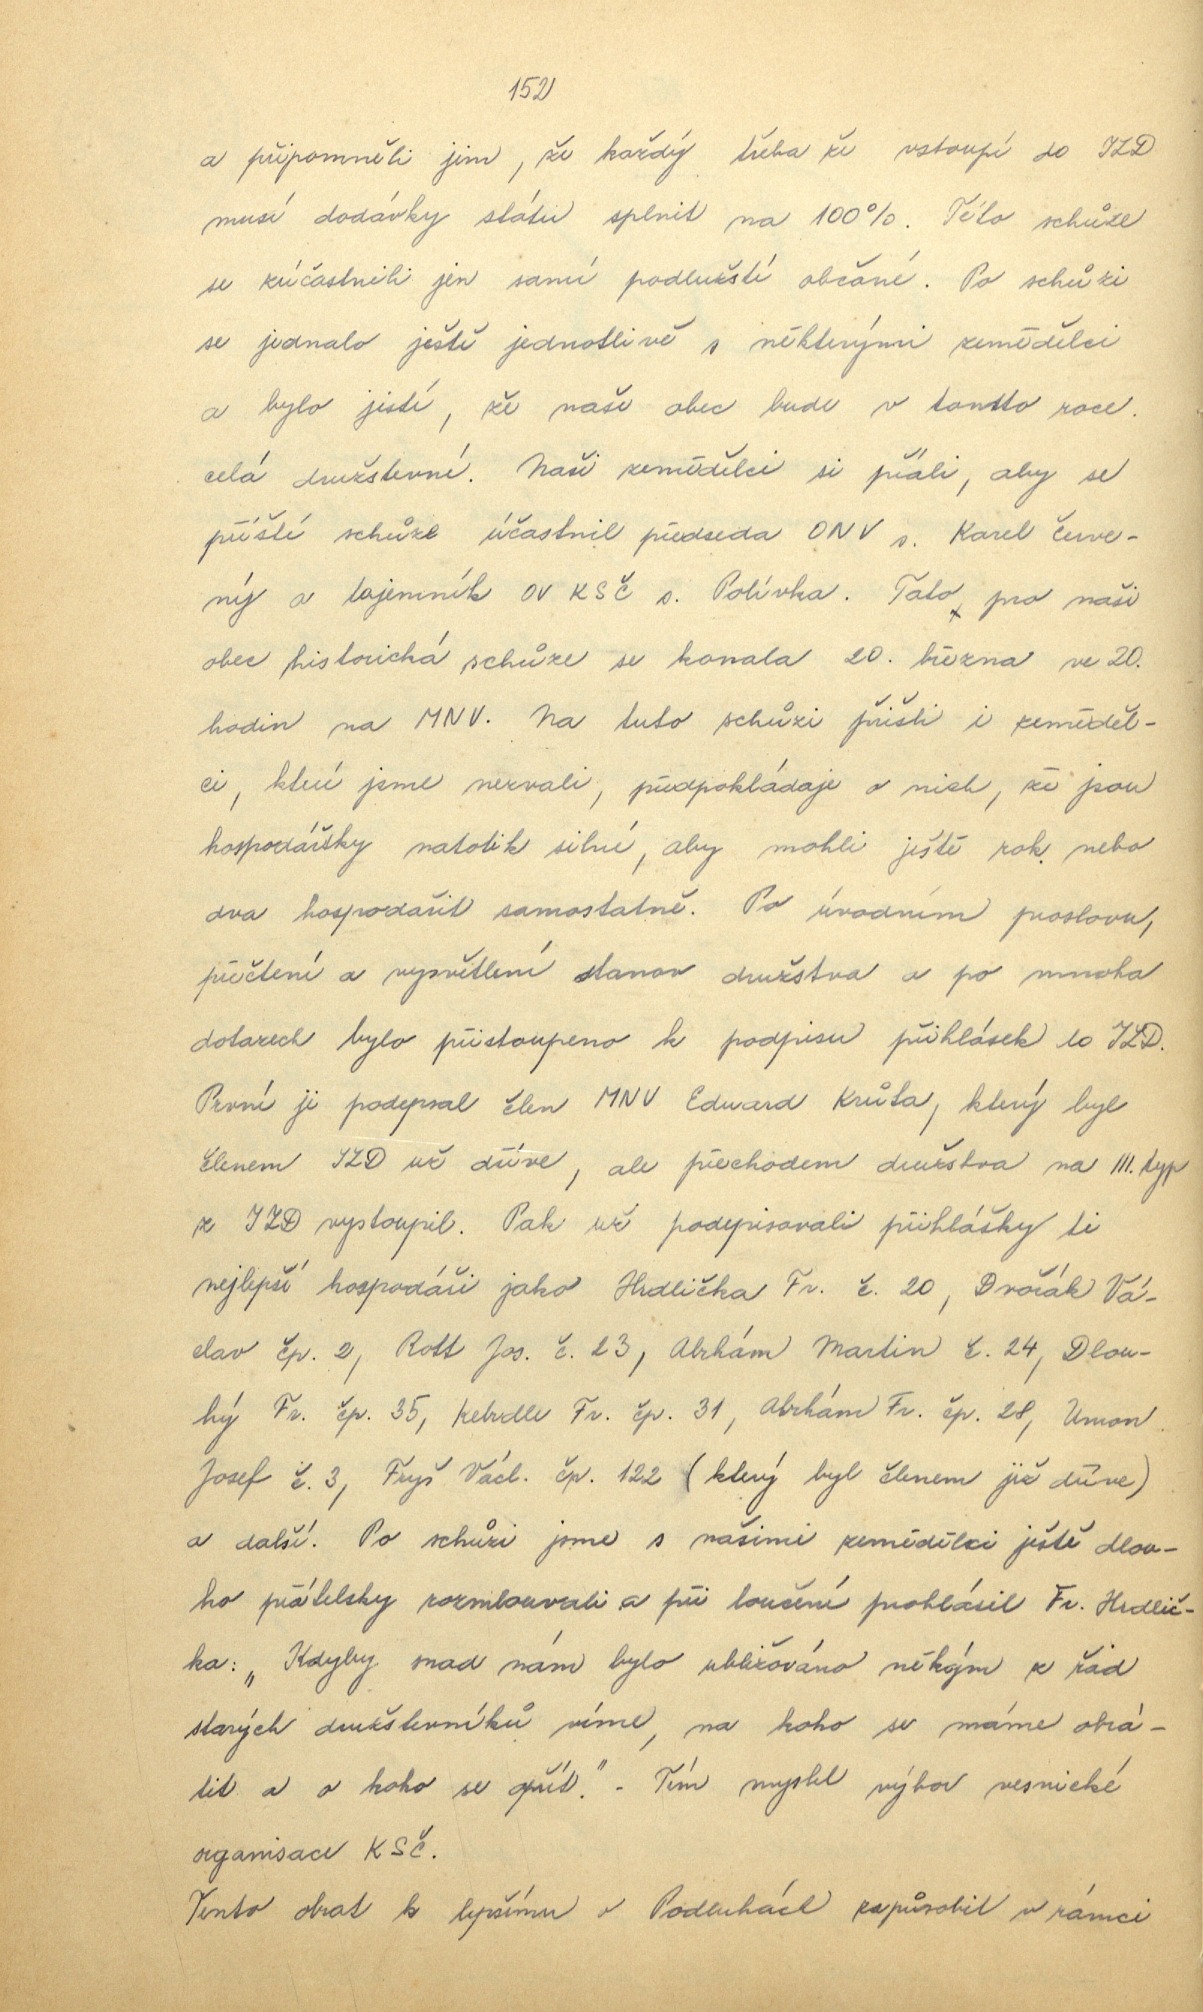 152
a připomněli jim, že každý třeba že vstoupí do JZD
musí dodávky státu splnit na 100%. Této schůze
se zúčastnili jen samí podlužští občané. Po schůzi
se jednalo ještě jednotlivě s některými zemědělci
a bylo jisté, že naše obec bude v tomto roce
celá družstevní. Naši zemědělci si přáli, aby se
příští schůze účastnil předseda ONV s. Karel Červe-
ný a tajemník OV KSČ s. Polívka. Tato, pro naši
obec historická schůze se konala 20. března ve 20.
hodin na MNV. Na tuto schůzi přišli i zeměděl-
ci, které jsme nezvali, předpokládaje o nich, že jsou
hospodářsky natolik silné, aby mohli ještě rok nebo
dva hospodařit samostatně. Po úvodním proslovu,
přečtení a vysvětlení stanov družstva a po mnoha
dotazech bylo přistoupeno k podpisu přihlásek do JZD.
První ji podepsal člen MNV Eduard Krůta, který byl
členem JZD už dříve, ale přechodem družstva na III. typ
z JZD vystoupil. Pak už podepisovali přihlášky ti
nejlepší hospodáři jako Hrdlička Fr. č. 20, Dvořák Vá-
clav čp. 2, Rott Jos. č. 23, Abrhám Martin č. 24, Dlou-
hý Fr. čp. 35, Kebrdle Fr. čp. 31, Abrhám Fr. čp. 28, Umon
Josef č. 3, Fryš Václ. čp. 122 (který byl členem již dříve)
a další. Po schůzi jsme s našimi zemědělci ještě dlou-
ho přátelsky rozmlouvali a při loučení prohlásil Fr. Hrdlič-
ka: „Kdyby snad nám bylo ubližováno někým z řad
starých družstevníků víme, na koho se máme obrá-
tit a o koho se opřít." - Tím myslel výbor vesnické
organisace KSČ.
Tento obrat k lepšímu v Podluhách zapůsobil v rámci